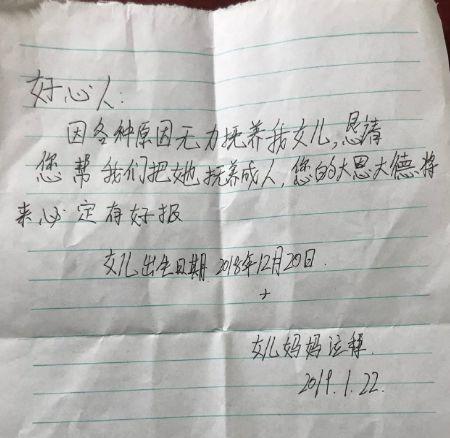 好心人：
因各种原因无力抚养我女儿，恳请
您帮我们把她抚养成人，您的大恩大德将
来必定有好报
女儿出生日期 2018年12月20日.
女儿妈妈泣释.
2019.1.22.